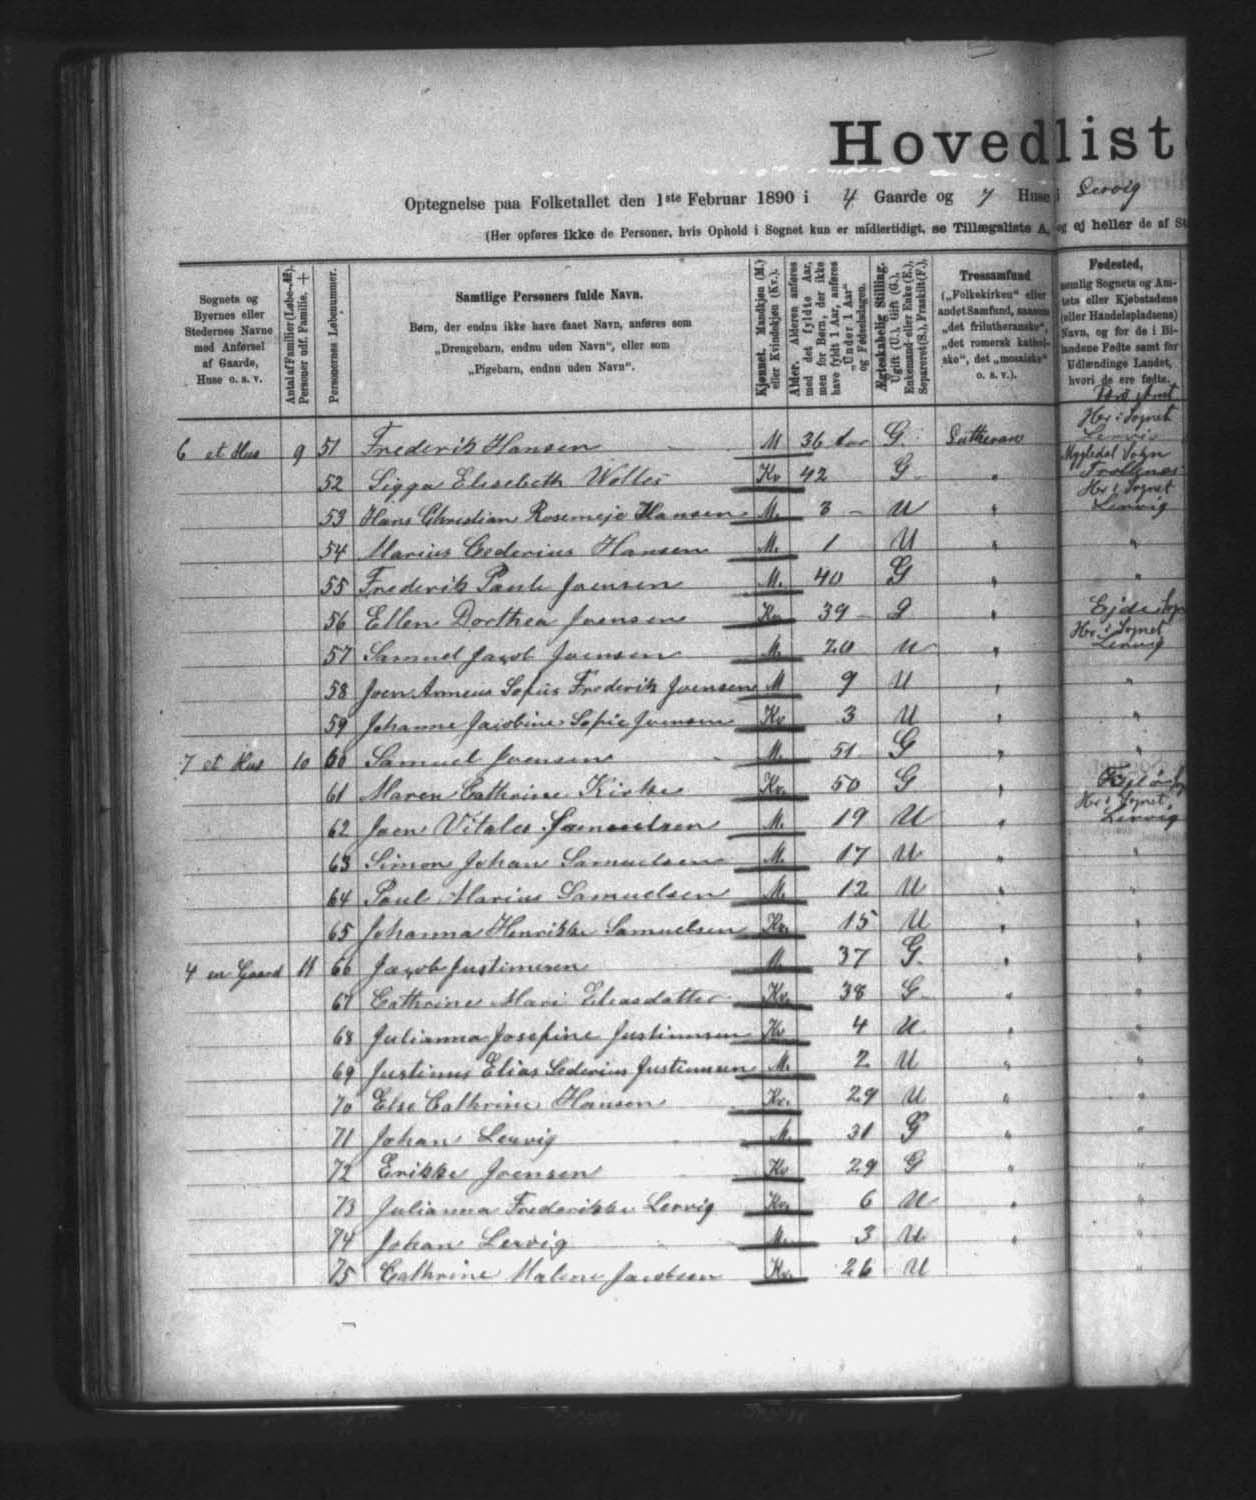 Hovedlist
Optegnelse paa Folketallet den 1ste Februar 1890 i 4 Gaarde og 7 Huse i Lervig
(Her opføres ikke de Personer, hvis Ophold i Sognet kun er midlertidigt, se Tillægsliste A, og ej heller de af St
Sognets og
Byernes eller
Stedernes Navne
med Anførsel
af Gaarde,
Huse o. s. v.
Antal af Familier (Løbe-№).
Personer udf. Familie. +
Personernes Løbenummer.
Samtlige Personers fulde Navn.
Børn, der endnu ikke have faaet Navn, anføres som
„Drengebarn, endnu uden Navn", eller som
„Pigebarn, endnu uden Navn".
Kjønnet. Mandkjøn (M.)
eller Kvindekjøn (Kv.).
Alder. Alderen anføres
med det fyldte Aar,
men for Børn, der ikke
have fyldt 1 Aar, anføres
„Under 1 Aar"
og Fødselsdagen.
Ægteskabelig Stilling.
Ugift (U.), Gift (G.),
Enkemand eller Enke (E.),
Separeret (S.), Fraskilt (F.).
Trossamfund
(„Folkekirken" eller
andet Samfund, saasom
„det frilutheranske",
„det romersk katholske",
det „mosaiske"
o. s. v.).
Fødested,
nemlig Sognets og Amtets
eller Kjøbstadens
(eller Handelspladsens)
Navn, og for de i Bilandene
Fødte samt for
Udlændinge Landet,
hvori de ere fødte.
6 et Hus 9 51 Frederik Hansen M 36 Aar G. Lutheran Her i Sognet Lervig
52 Sigga Elisabeth Kv 42 G " Sogn
53 Hans Christian Hansen M. 3 U " Her i Sognet Lervig
54 Marius Hansen M. 1 U " "
55 Frederik Paule Joensen M. 40 G " "
56 Ellen Dorthea Joensen Kv. 39 " Ejde
57 Samuel Jacob Joensen M. 20 U " Her i Sognet Lervig
58 Joen Sofus Frederik Joensen M 9 U " "
59 Johanne Jacobine Sofie Joensen Kv 3 U " "
7 et Hus 10 60 Samuel Joensen M. 51 G " "
61 Maren Cathrine Kv. 50 G "
62 Joen Vitales Samuelsen M. 19 U " Her i Sognet Lervig
63 Simon Johan Samuelsen M. 17 U " "
64 Paul Marius Samuelsen M. 12 U " "
65 Johanna Henrikke Samuelsen Kv. 15 U " "
4 en Gaard 11 66 Jacob Justinusen M. 37 G. " "
67 Cathrine Mari Eliasdatter Kv. 38 G " "
68 Julianna Josefine Justinusen Kv 4 U " "
69 Justinus Elias Justinusen M. 2 U " "
70 Else Cathrine Hansen Kv. 29 U " "
71 Johan Lervig M. 31 G " "
72 Erikke Joensen Kv 29 G " "
73 Julianna Frederikke Lervig Kv. 6 U " "
74 Johan Lervig M. 3 U " "
75 Cathrine Malene Jacobsen Kv. 26 U "